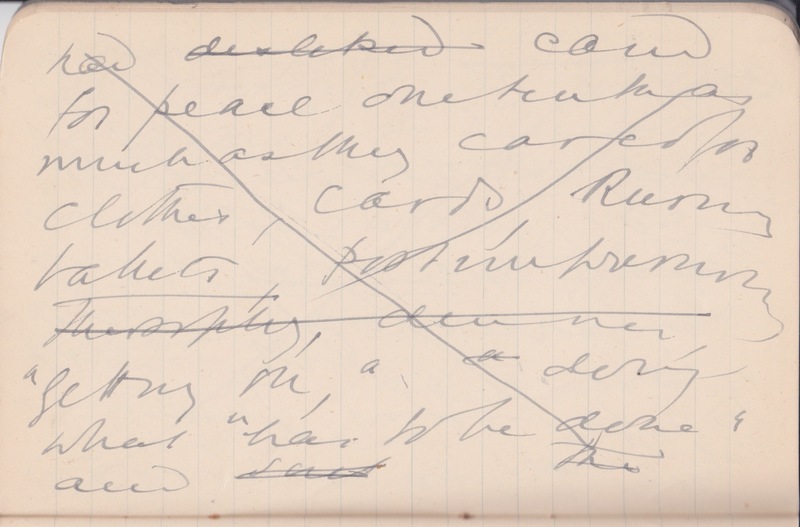 had disliked cared
for peace one tenth as
much as they cared for
clothes, cards Russian
ballets, postimpressionism
Theosophy, dinner
"getting on," doing
what "has to be done"
and